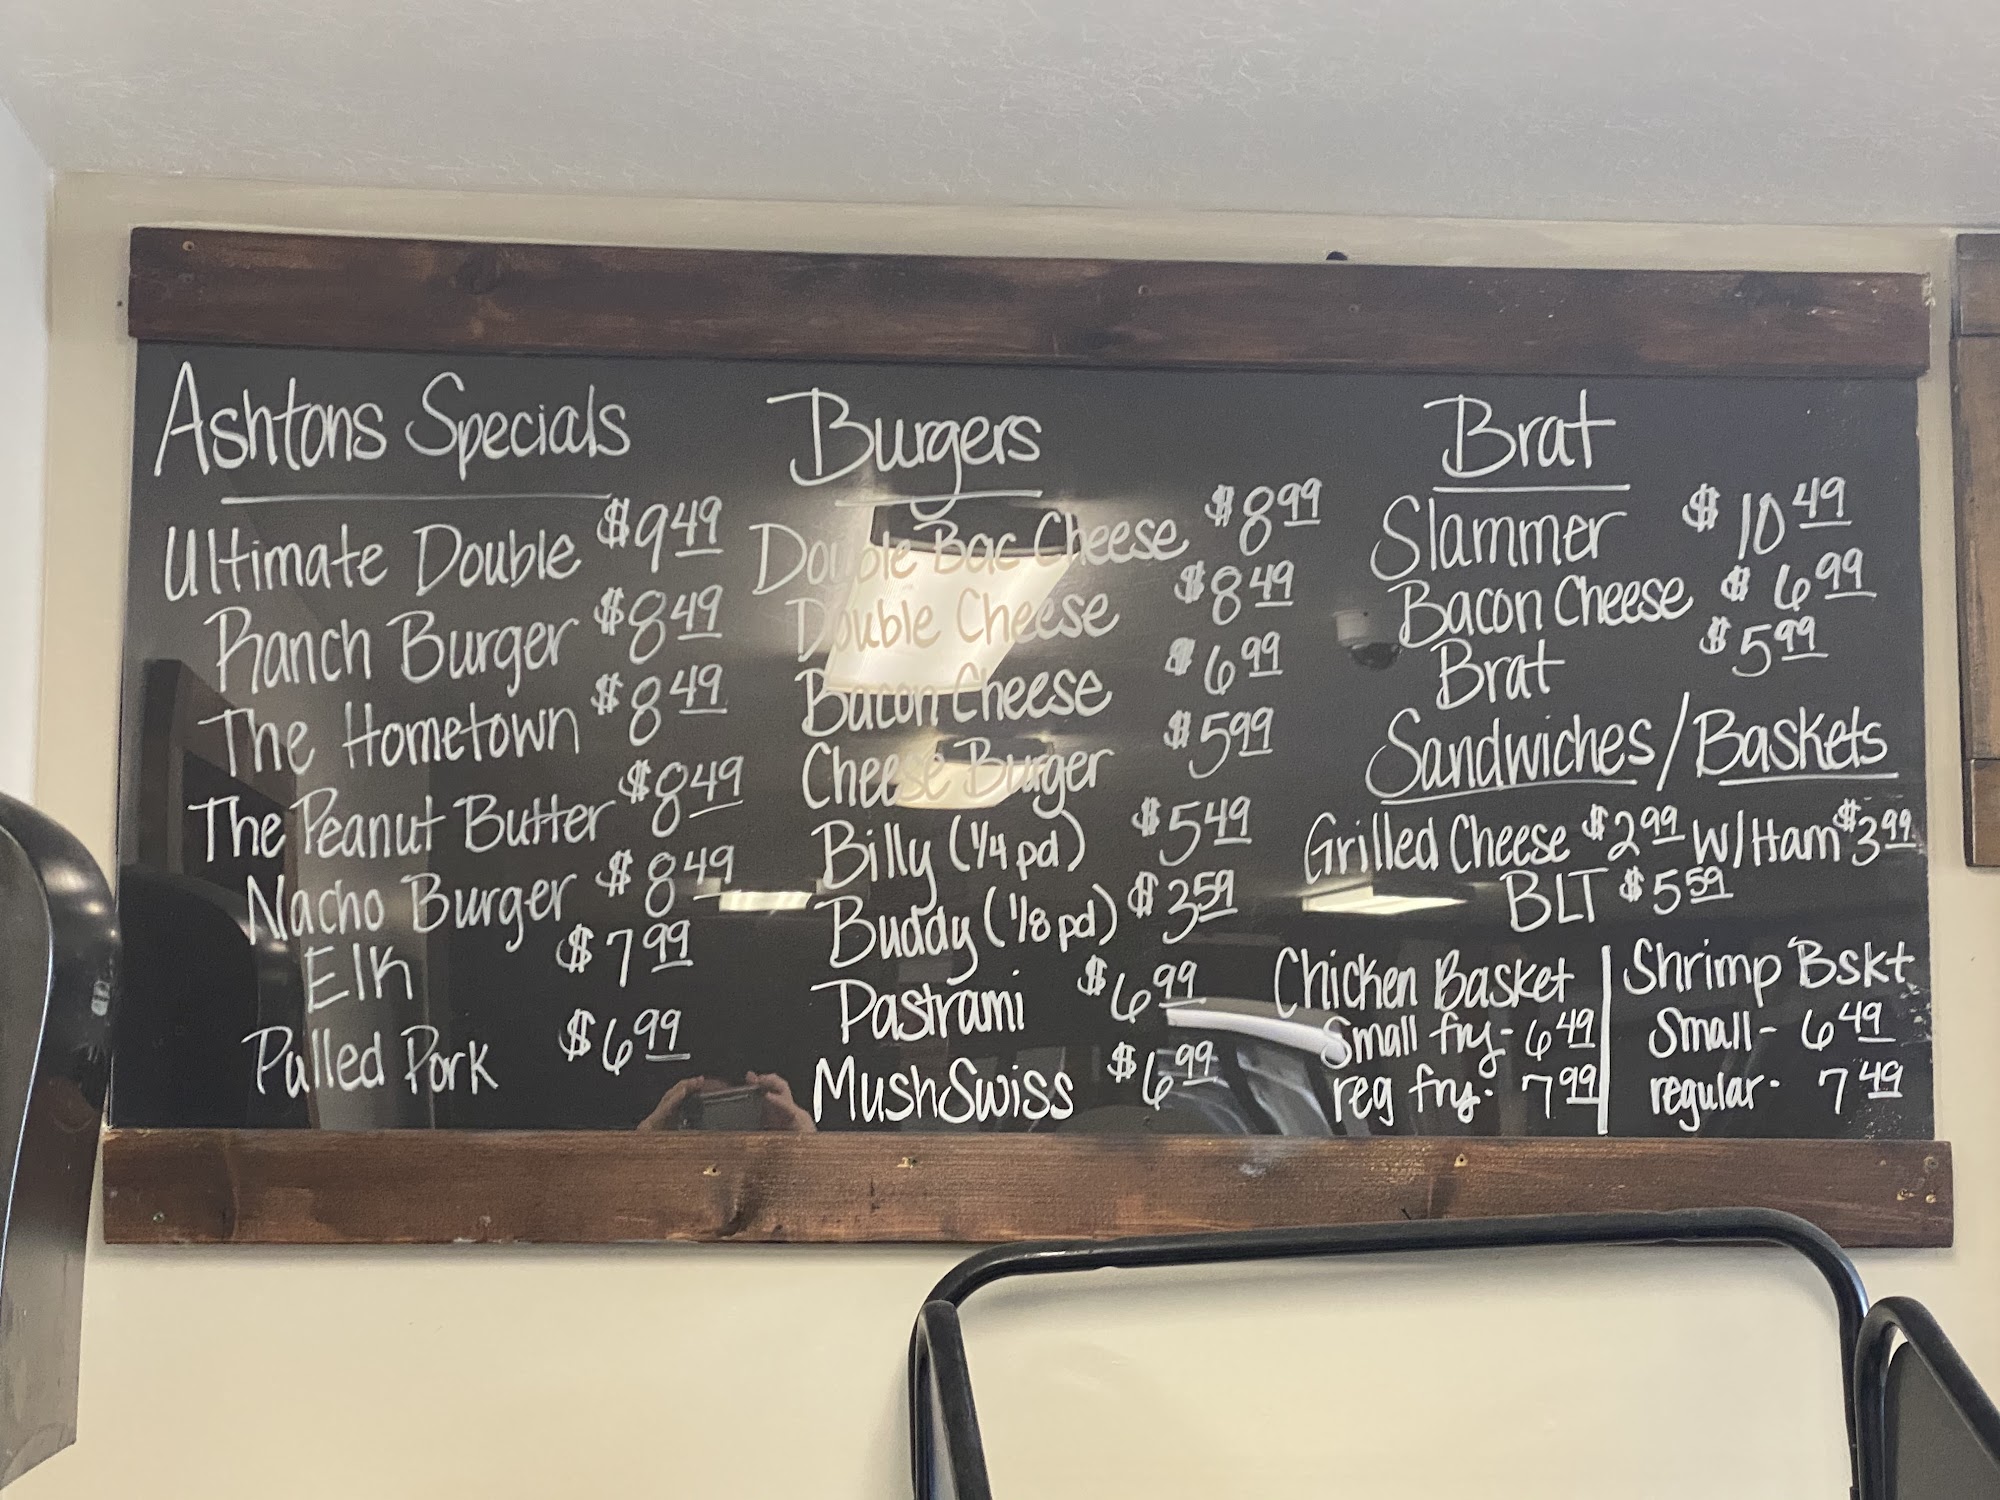 Ashtons Specials
Ultimate Double $9.49
Ranch Burger $8.49
The Hometown $8.49
The Peanut Butter $8.49
Nacho Burger $8.49
Elk $7.99
Pulled Pork $6.99
Burgers
Double Bac Cheese $8.99
Double Cheese $8.49
Bacon Cheese $6.99
Cheese Burger $5.99
Billy (1/4 pd) $5.49
Buddy (1/8 pd) $3.59
Pastrami $6.99
MushSwiss $6.99
Brat
Slammer $10.49
Bacon Cheese $6.99
Brat $5.99
Sandwiches/Baskets
Grilled Cheese $2.99 W/Ham $3.99
BLT $5.59
Chicken Basket
Small fry - 6.49
reg fry - 7.99
Shrimp Bskt
Small - 6.49
regular - 7.49